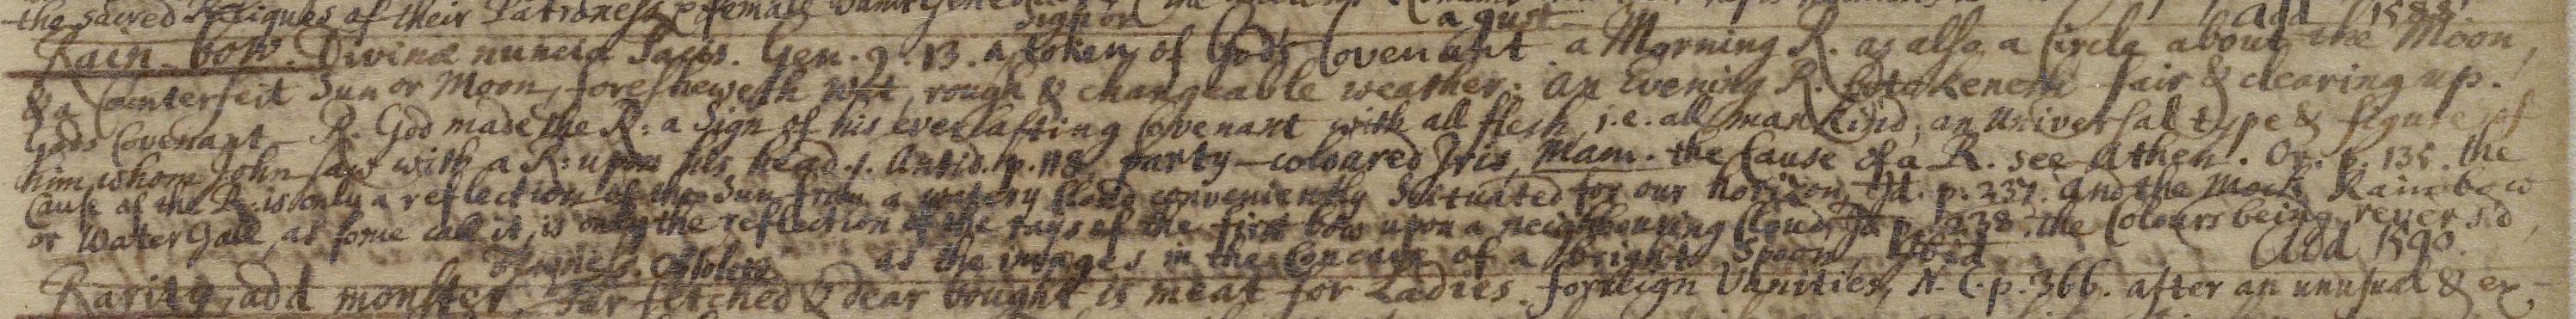 the sacred Reliques of their Patroness, female Saint
sign or
a gust
add 1588.
Rain-bow. Divinæ nuncia Pacis. Gen. 9. 13. a token of God's Covenant a Morning R. as also a Circle about the Moon,
& a Counterfeit Sun or Moon, foresheweth wet, rough & changeable weather: an Evening R. betokeneth fair & clearing up.
Gods Covenant - R. God made the R: a Sign of his everlasting Covenant with all flesh, i.e. all mankind, an Universal type & figure of
him whom John saw with a R: upon his head. 1. Antid. p. 118. party-coloured Iris, Mam. the Cause of a R. see Athen. Or. p. 135. the
Cause of the R. is only a reflection of the Sun from a watery Cloud conveniently Scituated for our horizon, Id. p. 237. and the Mock Rainbow
or Water Gall, as some call it, is only the reflection of the rays of the first bow upon a neighbouring Cloud, Id. p. 238. the Colours being revers'd,
as the images in the Concave of a bright Spoon, Ibid.
Add 1590.
Rarity, add monster. Far fetched & dear bought is meat for Ladies. foreign Vanities, N. C. p. 366. after an unusual & ex-